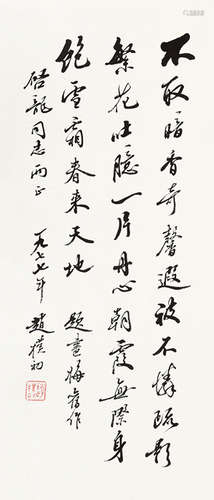 不取暗香奇馨遐被不怜疏影
繁花吐臆一片丹心朝霞无际身
饱雪霜春来天地 题画梅旧作
启龙同志两正 一九七七年 赵朴初